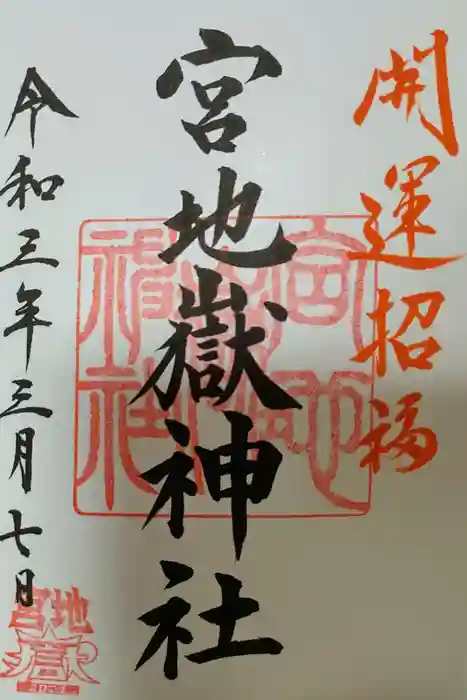 開運招福
宮地嶽神社
令和三年三月七日
宮地
嶽